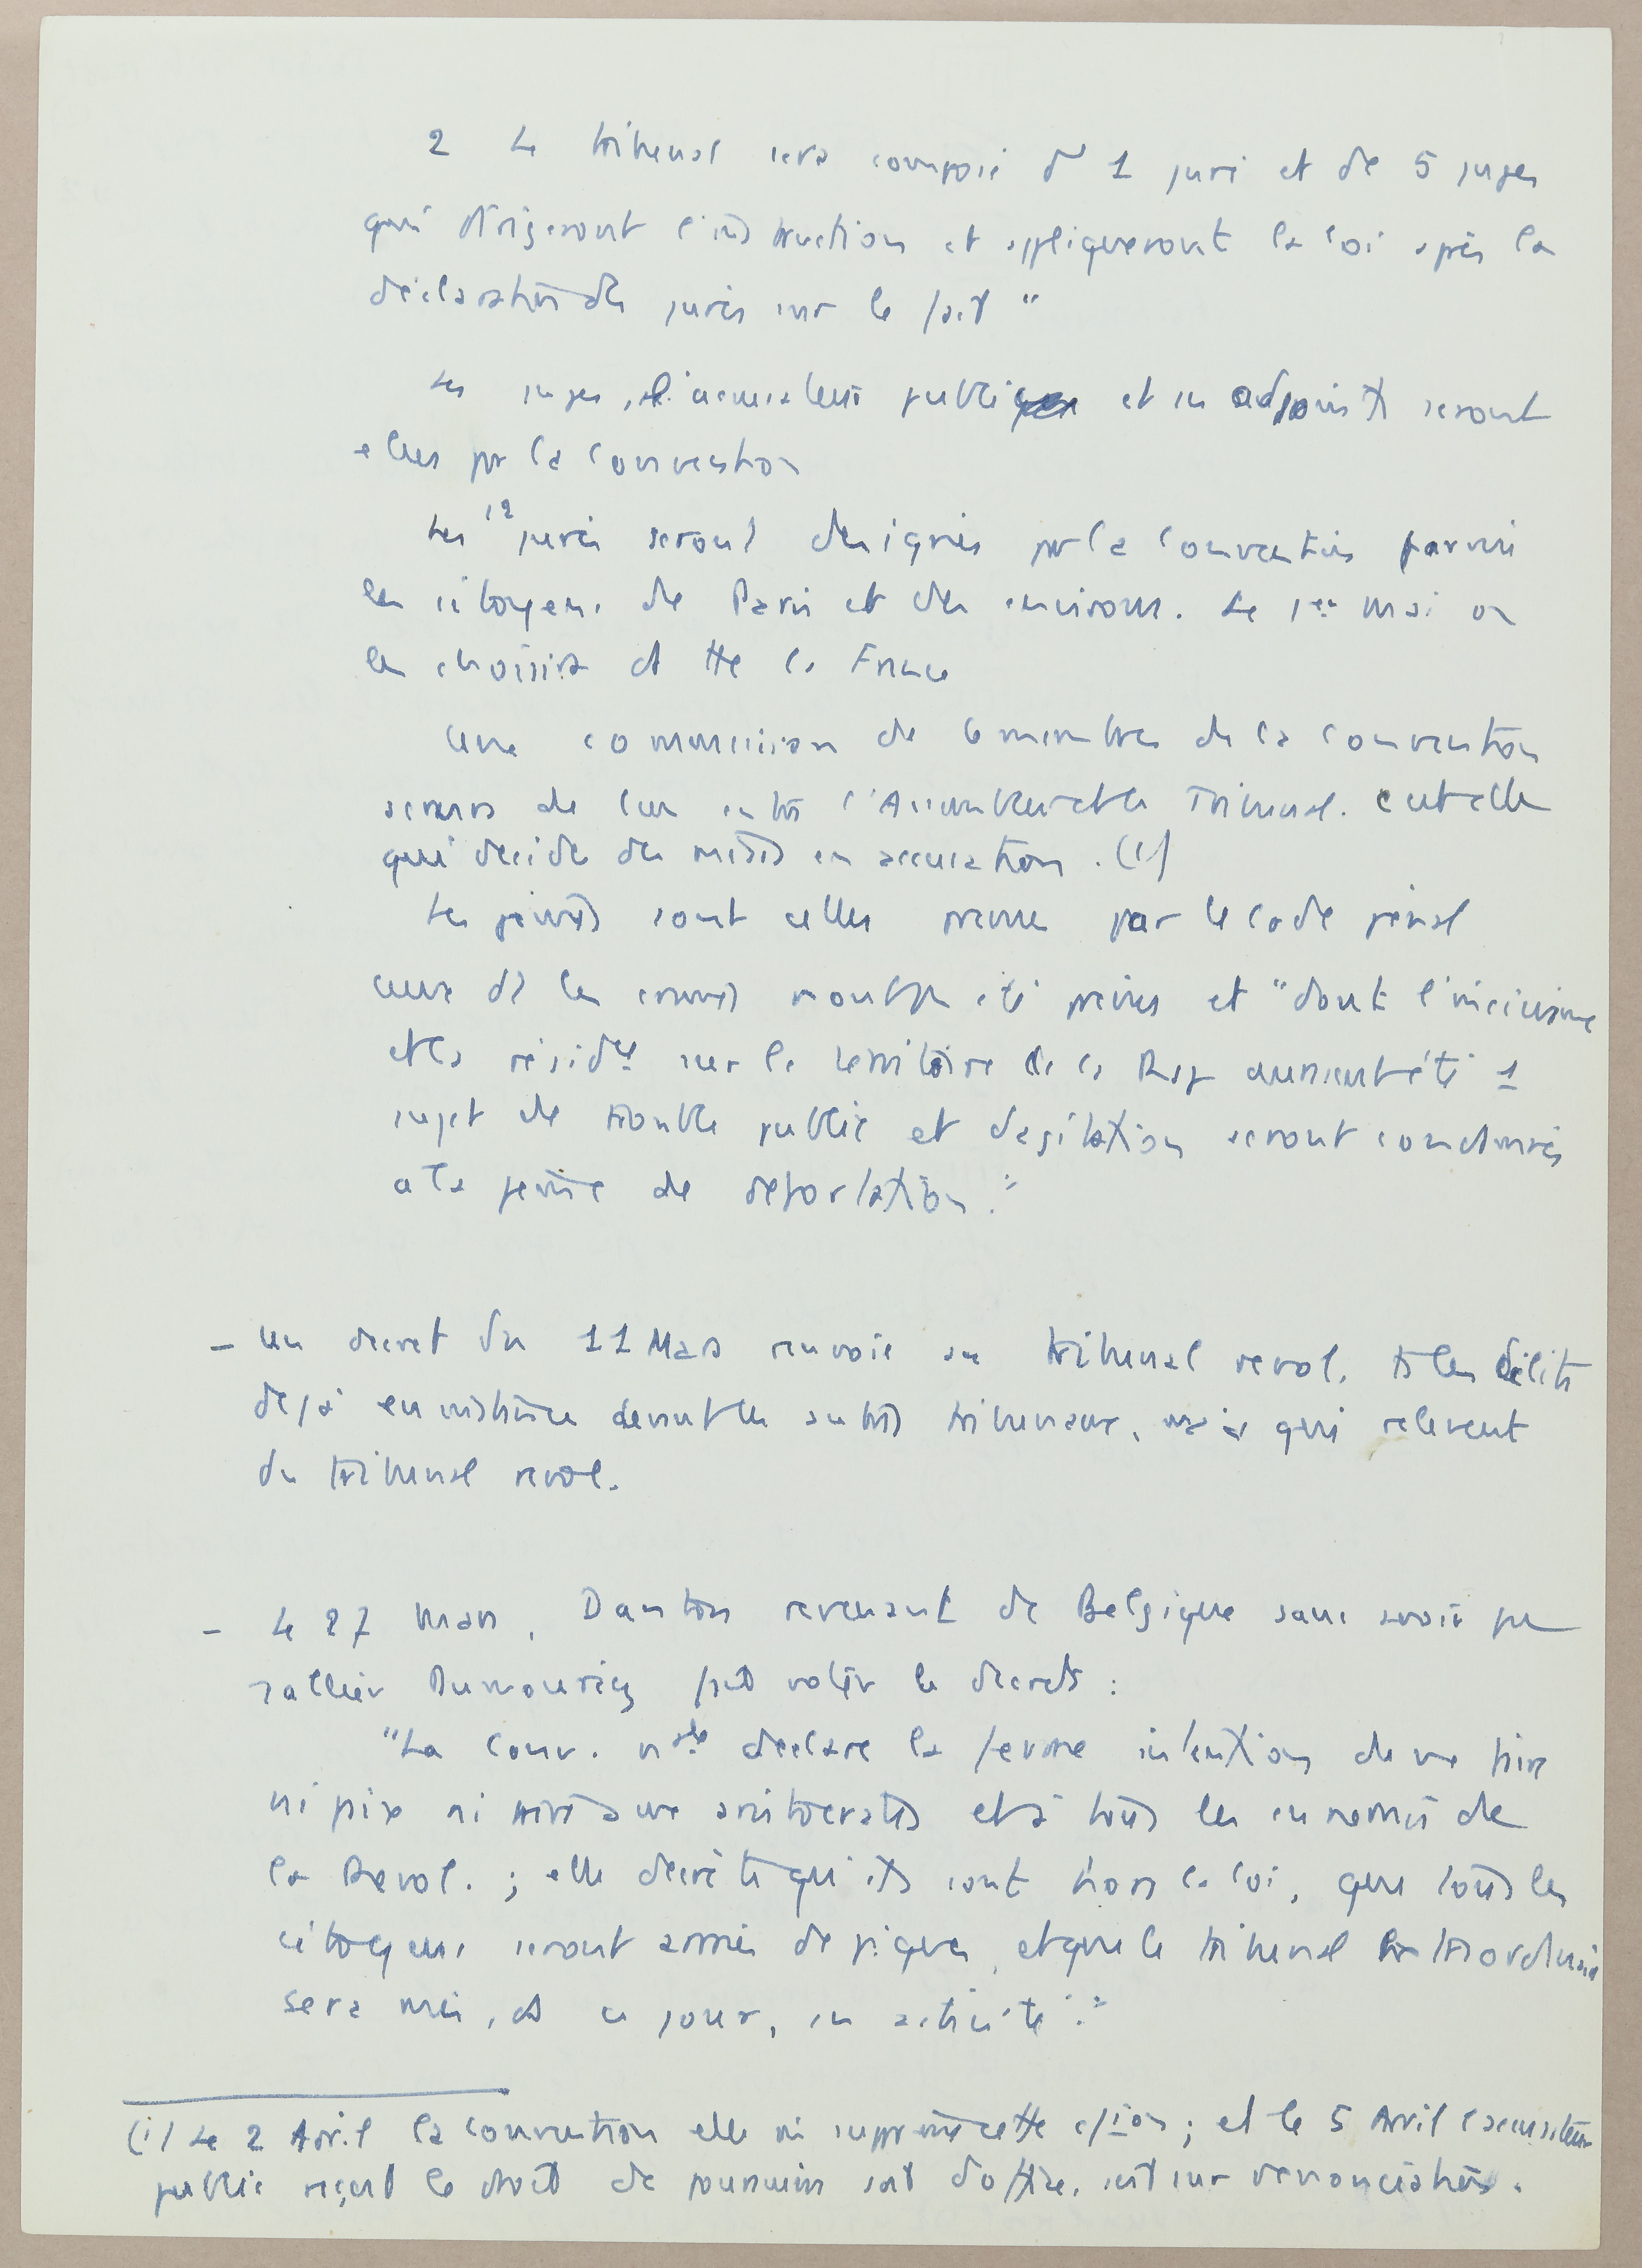 2 Le tribunal sera composé d' 1 juré et de 5 juges
qui dirigeront l'instruction et appliqueront la loi après la
déclaration des jurés sur le fait "
Les juges, l'accusateur public et les adjoints seront
elues par la Convention
Les 12 jurés seront designés par la Convention parmi
les citoyens de Paris et des environs. Le 1er mai on
les choisira ds tte la France
Une commission de 6 membres de la Convention
servira de lien entre l'Assemblée et le Tribunal. C'est elle
qui decide des mises en accusation. (1)
Les peines sont celles prevues par le code pénal
ceux ds les crimes n'ont pas été prévus et "dont l'incivisme
et la résidce sur le territoire de la Rep auraient été 1
sujet de trouble public et d'agitation seront condamnés
a la peine de deportation."
- Un decret du 11 Mars renvoie au tribunal revol. ts les délits
dejà en instance devant les autres tribunaux, mais qui relevent
du tribunal revol.
- Le 27 mars, Danton revenant de Belgique sans avoir pu
rallier Dumouriez fait voter le decrets :
"La Conv. nale declare la ferme intention de ne faire
ni paix ni trève aux aristocrates et à tous les ennemis de
la Revol. ; elle decrète qu'ils sont hors la loi, que tous les
citoyens seront armés de piques, et que le tribunal extraordinaire
sera mis, ds ce jour, en activité."
(1) Le 2 Avril la Convention elle mm supprime cette c/ion ; et le 5 Avril l'accusateur
public reçut le droit de poursuivre soit d'office, soit sur denonciation.